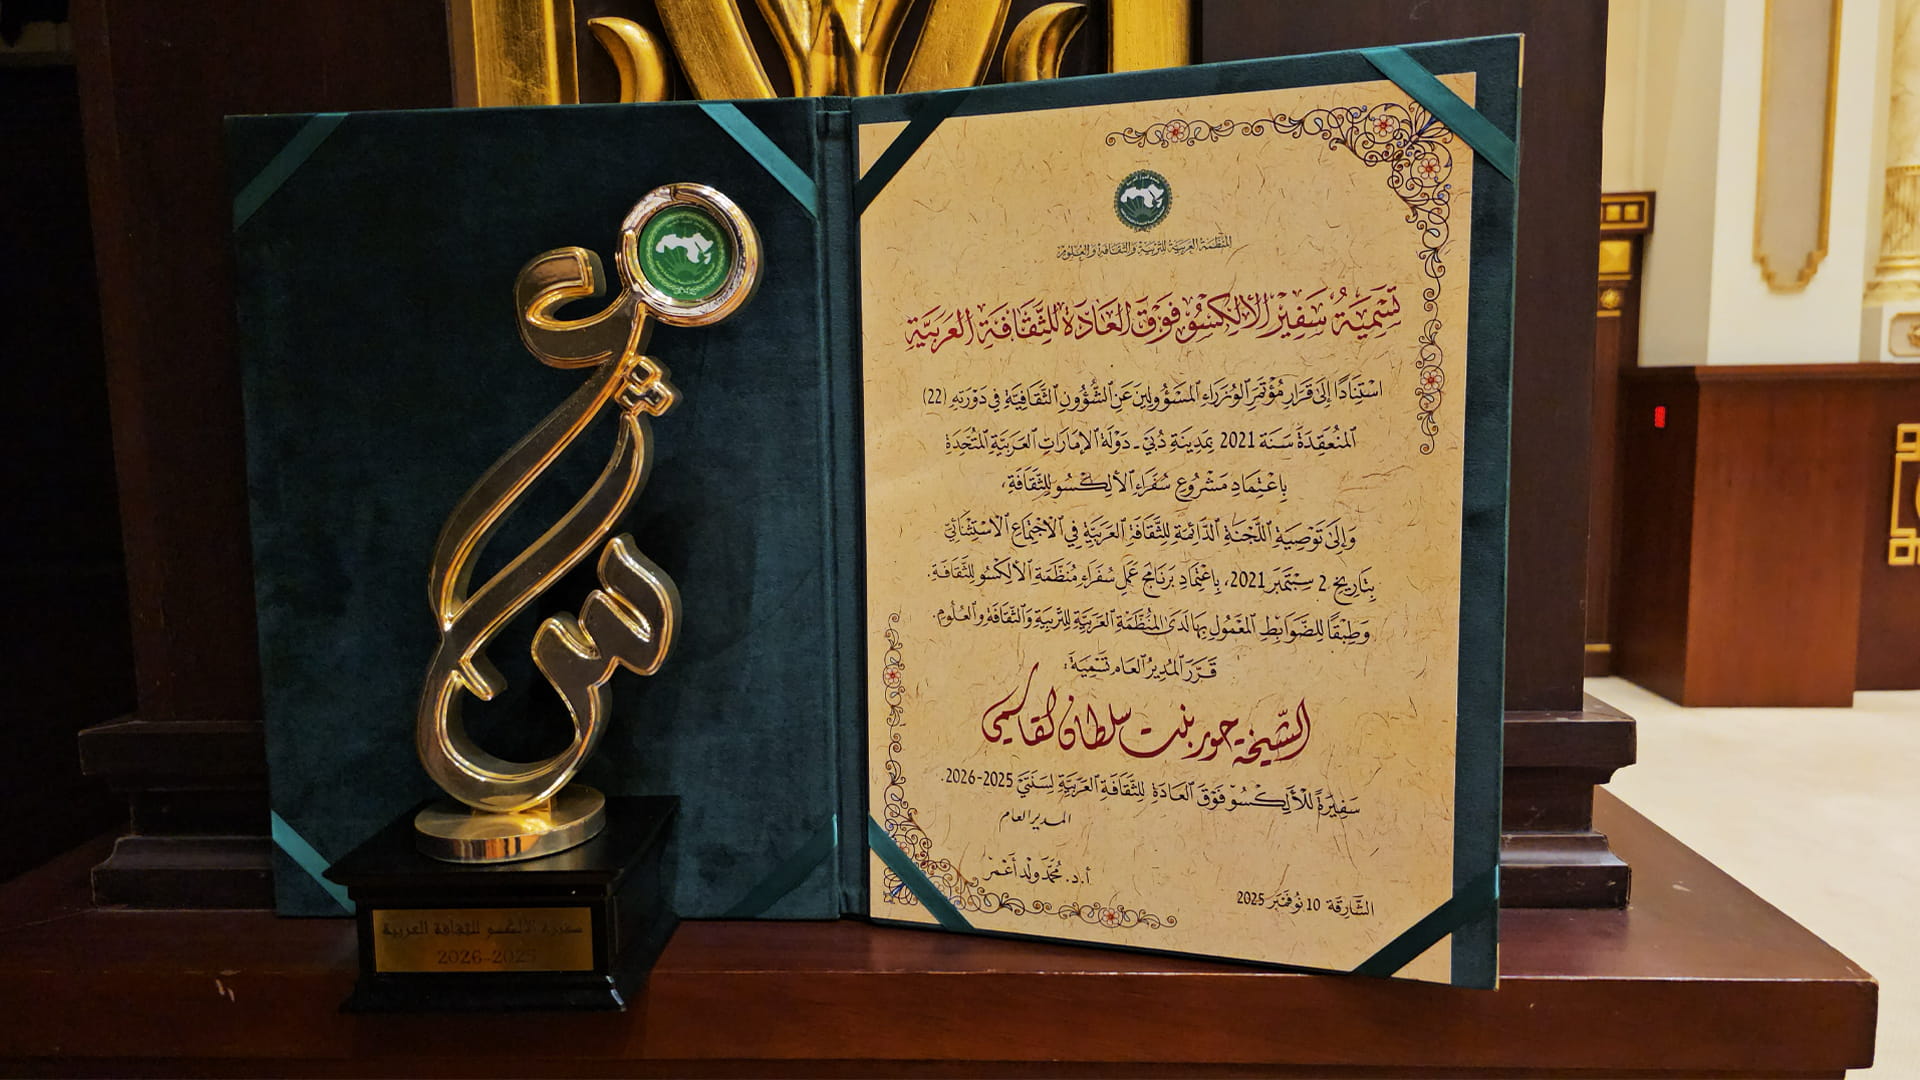 المنظمة العربية للتربية والثقافة والعلوم
تَسْمِيَةُ سَفِيرِ الأَلِكْسُو فَوْقَ العَادَةِ لِلثَّقَافَةِ العَرَبِيَّةِ
اسْتِنَادًا إِلَى قَرَارِ مُؤْتَمَرِ الوُزَرَاءِ المَسْؤُولِينَ عَنِ الشُّؤُونِ الثَّقَافِيَّةِ فِي دَوْرَتِهِ (22)
المُنْعَقِدَةُ سَنَةَ 2021 بِمَدِينَةِ دُبَيْ - دَوْلَةُ الإِمَارَاتِ العَرَبِيَّةِ المُتَّحِدَةِ
بِاعْتِمَادِ مَشْرُوعِ سُفَرَاءِ الأَلِكْسُو لِلثَّقَافَةِ،
وَإِلَى تَوْصِيَةِ اللَّجْنَةِ الدَّائِمَةِ لِلثَّقَافَةِ العَرَبِيَّةِ فِي الاجْتِمَاعِ الاسْتِثْنَائِيِّ
بِتَارِيخِ 2 سِبْتَمْبَرَ 2021، بِاعْتِمَادِ بَرْنَامَجِ عَمَلِ سُفَرَاءِ مُنَظَّمَةِ الأَلِكْسُو لِلثَّقَافَةِ.
وَطِبْقًا لِلضَّوَابِطِ المَعْمُولِ بِهَا لَدَى المُنَظَّمَةِ العَرَبِيَّةِ لِلتَّرْبِيَةِ وَالثَّقَافَةِ وَالعُلُومِ.
قَرَّرَ المُدِيرُ العَام تَسْمِيَةَ:
الشّيخة حور بنت سلطان القاسمي
سَفِيرَةً لِلأَلِكْسُو فَوْقَ العَادَةِ لِلثَّقَافَةِ العَرَبِيَّةِ لِسَنَتَيْ 2025-2026.
المدير العام
أ.د. مُحَمَّد وَلَد أَعْمَرْ
الشَّارِقَة 10 نُوفَمْبَر 2025
سفيرة الألكسو للثقافة العربية
2026-2025